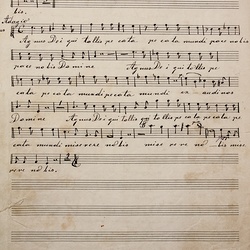 bis.
Adagio
Agnus Dei qui tollis pecata pecata mundi parce nobis
parce nobis Domine Agnus Dei qui tollis pe
cata pecata mundi pecata mundi ex audi nos
Domine Agnus Dei qui tollis pecata pecata pe
cata mundi miserere nobis mise re re no bis mise
rere nobis.